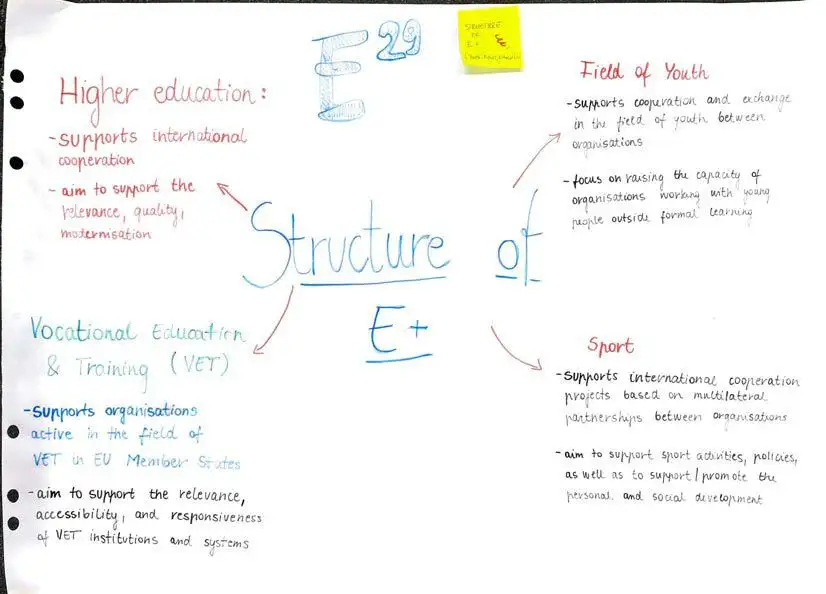 E29
STRUCTURE
OF
E+
Higher education:
- supports international
cooperation
- aim to support the
relevance, quality,
modernisation
Field of Youth
- supports cooperation and exchange
in the field of youth between
organisations
- focus on raising the capacity of
organisations working with young
people outside formal learning
Structure of
E+
Vocational Education
& Training (VET)
- supports organisations
active in the field of
VET in EU Member States
- aim to support the relevance,
accessibility, and responsiveness
of VET institutions and systems
Sport
- supports international cooperation
projects based on multilateral
partnerships between organisations
- aim to support sport activities, policies,
as well as to support/promote the
personal and social development